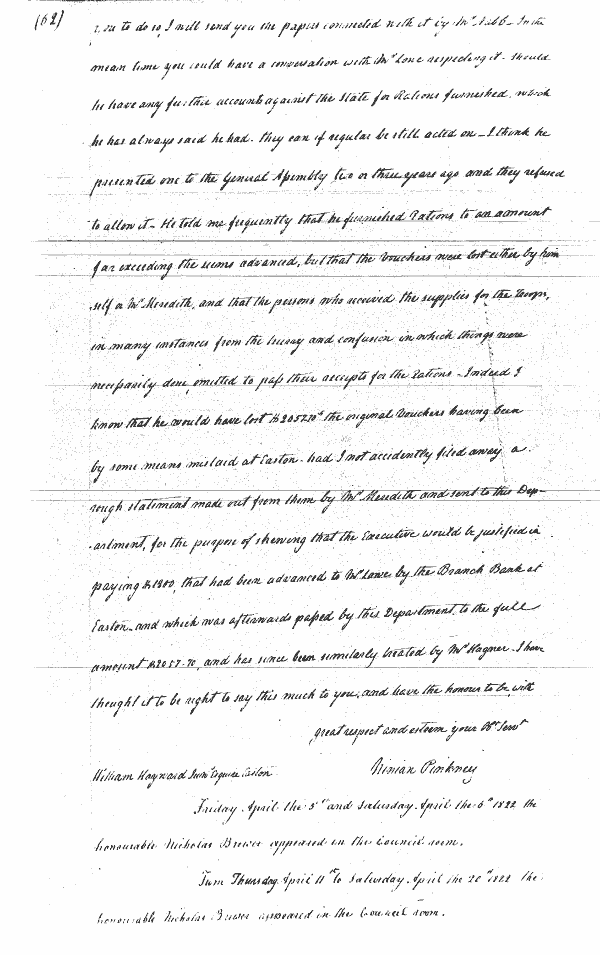 (62)
you to do so, I will send you the papers connected with it by Mr. Nabb - In the
mean time you could have a conversation with Mr Lowe respecting it - Should
he have any further accounts against the State for Rations furnished, which
he has always said he had. they can if regular be still acted on - I think he
presented one to the General Assembly two or three years ago and they refused
to allow it - He told me frequently that he furnished Rations to an amount
far exceeding the sums advanced, but that the Vouchers were lost either by him
self or Mr Meredith, and that the persons who received the supplies for the Troops,
in many instances from the hurry and confusion in which things were
necessarily done, omitted to pass their receipts for the Rations - Indeed I
know that he would have lost $2057.70 the original Vouchers having been
by some means mislaid at Easton - had I not accidently filed away a
rough statement made out from them by Mr Meredith and sent to this Dep-
-artment, for the purpose of shewing that the Executive would be justified in
paying $1800, that had been advanced to Mr Lowe by the Branch Bank at
Easton - and which was afterwards passed by this Department, to the full
amount $2057.70, and has since been similarly treated by Mr Hagner. I have
thought it to be right to say this much to you, and have the honour to be, with
great respect and esteem your Obt Servt
Ninian Pinkney
William Hayward Junr Esquire Easton
Friday April the 5th and Saturday April the 6th 1822 the
honourable Nicholas Brewer appeared in the Council room.
From Thursday April 11th to Saturday April the 20th 1822 the
honourable Nicholas Brewer appeared in the Council room.